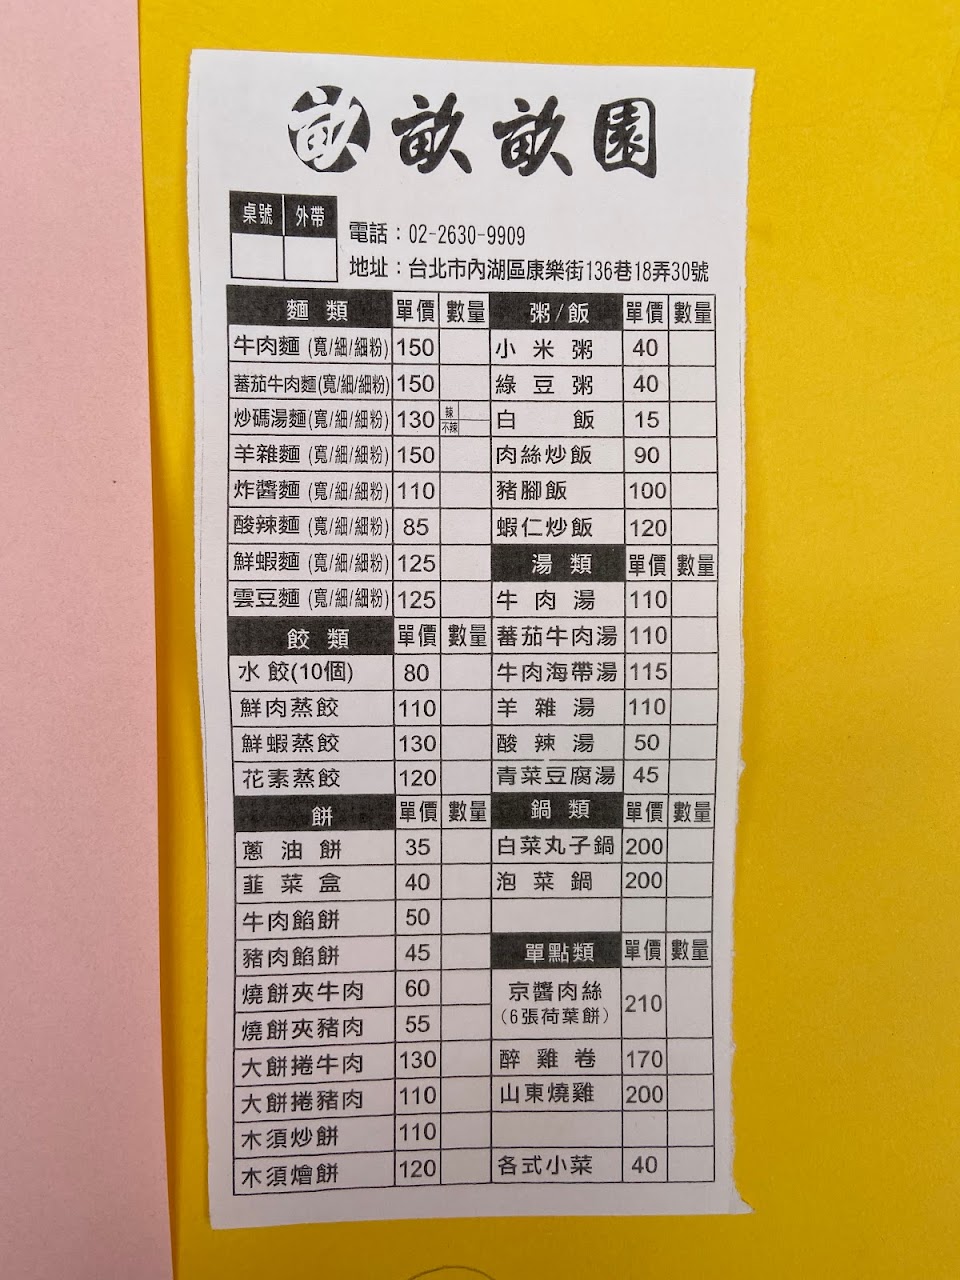 畝畝畝園
桌號 外帶
電話：02-2630-9909
地址：台北市內湖區康樂街136巷18弄30號
麵類 單價 數量
牛肉麵 (寬/細/細粉) 150
蕃茄牛肉麵(寬/細/細粉) 150
炒碼湯麵(寬/細/細粉) 130 辣 不辣
羊雜麵 (寬/細/細粉) 150
炸醬麵 (寬/細/細粉) 110
酸辣麵 (寬/細/細粉) 85
鮮蝦麵 (寬/細/細粉) 125
雲豆麵 (寬/細/細粉) 125
餃類 單價 數量
水餃(10個) 80
鮮肉蒸餃 110
鮮蝦蒸餃 130
花素蒸餃 120
餅 單價 數量
蔥油餅 35
韮菜盒 40
牛肉餡餅 50
豬肉餡餅 45
燒餅夾牛肉 60
燒餅夾豬肉 55
大餅捲牛肉 130
大餅捲豬肉 110
木須炒餅 110
木須燴餅 120
粥/飯 單價 數量
小米粥 40
綠豆粥 40
白飯 15
肉絲炒飯 90
豬腳飯 100
蝦仁炒飯 120
湯類 單價 數量
牛肉湯 110
蕃茄牛肉湯 110
牛肉海帶湯 115
羊雜湯 110
酸辣湯 50
青菜豆腐湯 45
鍋類 單價 數量
白菜丸子鍋 200
泡菜鍋 200
單點類 單價 數量
京醬肉絲 210
(6張荷葉餅)
醉雞卷 170
山東燒雞 200
各式小菜 40